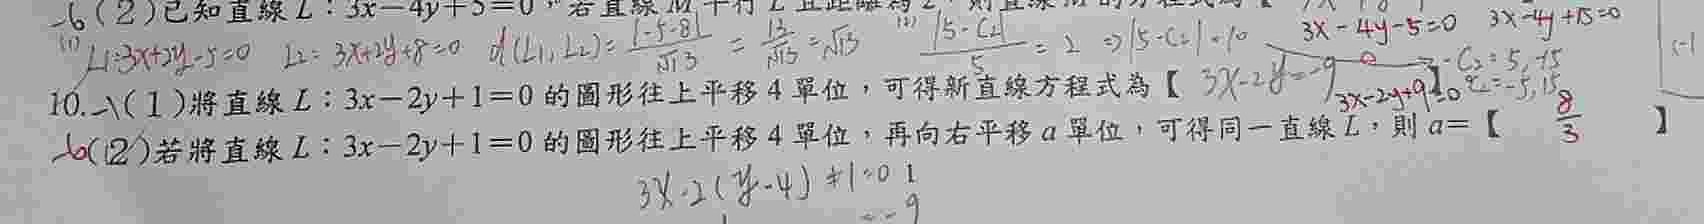 6(2)已知直線L：3x−4y+5=0，若直線M平行L且距離為2，則直線M的方程式為【
3x-4y-5=0 3x-4y+15=0
(1) L1:3x+2y-5=0 L2=3x+2y+8=0 d(L1,L2)=|-5-8|/√13=13/√13=√13 (2) |5-C2|/5=2⇒|5-C2|=10
-C2=5,-15
C2=-5,15
10.(1)將直線L：3x−2y+1=0的圖形往上平移4單位，可得新直線方程式為【 3x-2y=-9 】
3x-2y+9=0
6(2)若將直線L：3x−2y+1=0的圖形往上平移4單位，再向右平移a單位，可得同一直線L，則a=【 8/3 】
3x-2(y-4)+1=0
=-9